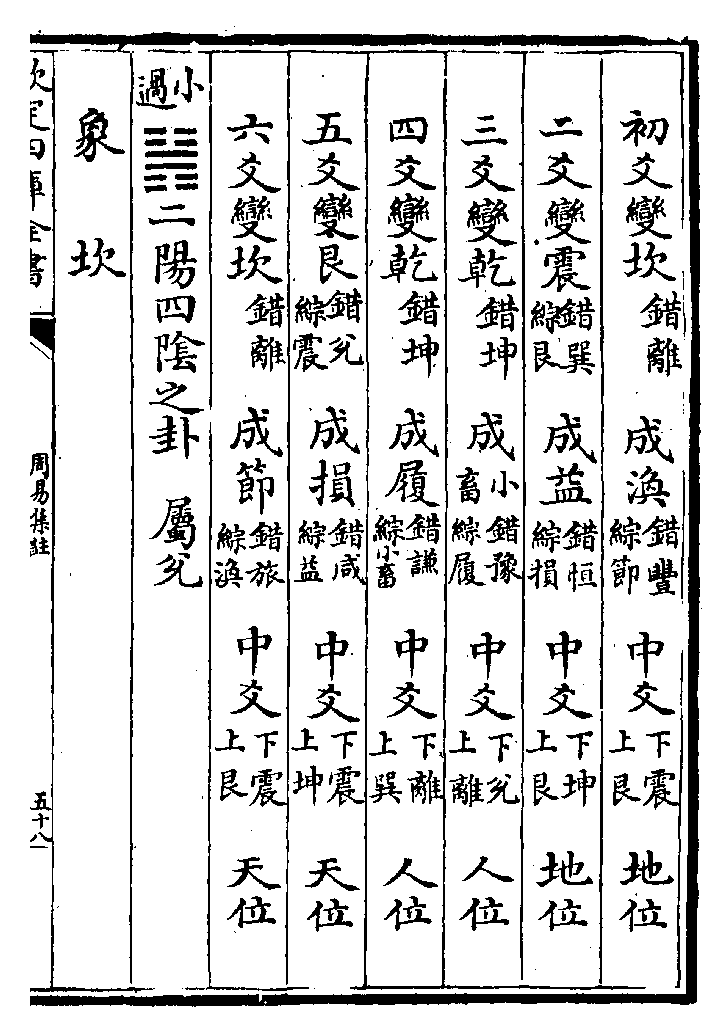 初爻變坎錯離 成渙錯豐綜節 中爻下震上艮 地位
二爻變震錯巽綜艮 成益錯恒綜損 中爻下坤上艮 地位
三爻變乾錯坤 成小畜錯豫綜履 中爻下兌上離 人位
四爻變乾錯坤 成履錯謙綜小畜 中爻下離上巽 人位
五爻變艮錯兌綜震 成損錯咸綜益 中爻下震上坤 天位
六爻變坎錯離 成節錯旅綜渙 中爻下震上艮 天位
小過䷽二陽四陰之卦 屬兌
象坎
欽定四庫全書 周易集註 五十八